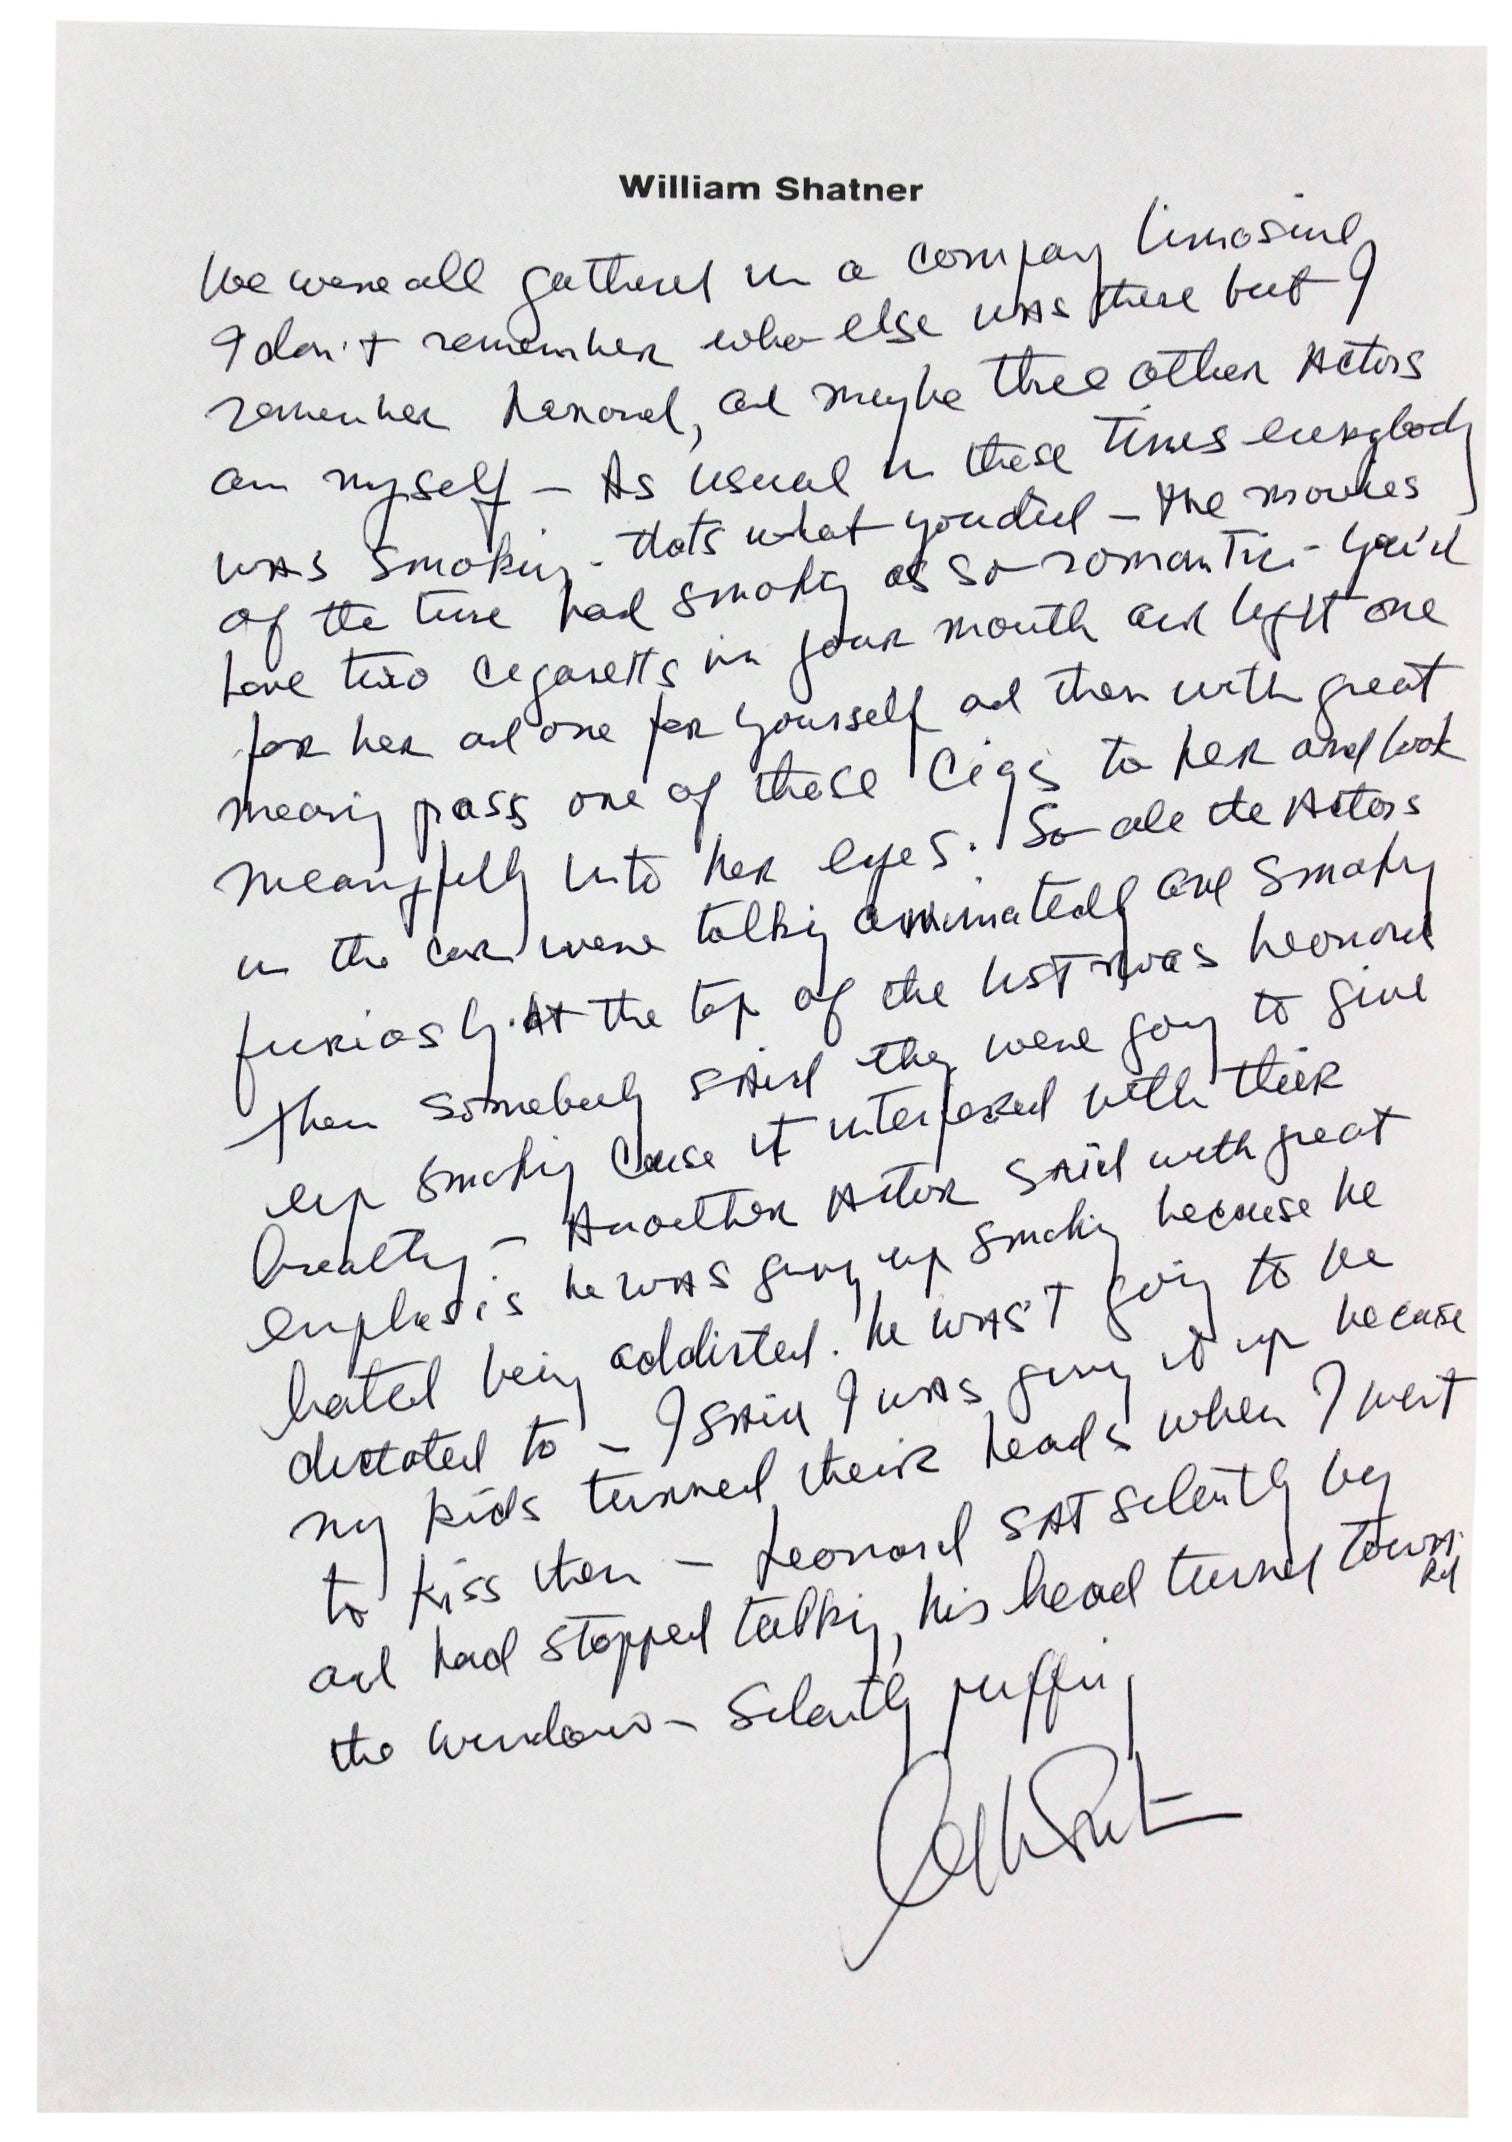 William Shatner
We were all gathered in a company limosine
I don't remember who else was there but I
remember Leonard, and maybe three other Actors
an myself – As usual in these times everybody
was smoking. thats what you did – the movies
of the time had smoking as so romantic – You'd
have two cigaretts in your mouth and light one
for her and one for yourself and then with great
meaning pass one of these cigs to her and look
meaningfully into her eyes. So all the Actors
in the car were talking animatedly and smoking
furiosly. At the top of the list was Leonard
then somebody said they were going to give
up smoking cause it interfered with their
breathing – Another Actor said with great
emphasis he was giving up smoking because he
hated being addicted. he was't going to be
dictated to – I said I was giving it up because
my kids turned their heads when I went
to kiss them – Leonard sat silently by
and had stopped talking, his head turned towa
rd
the window – Silently puffing